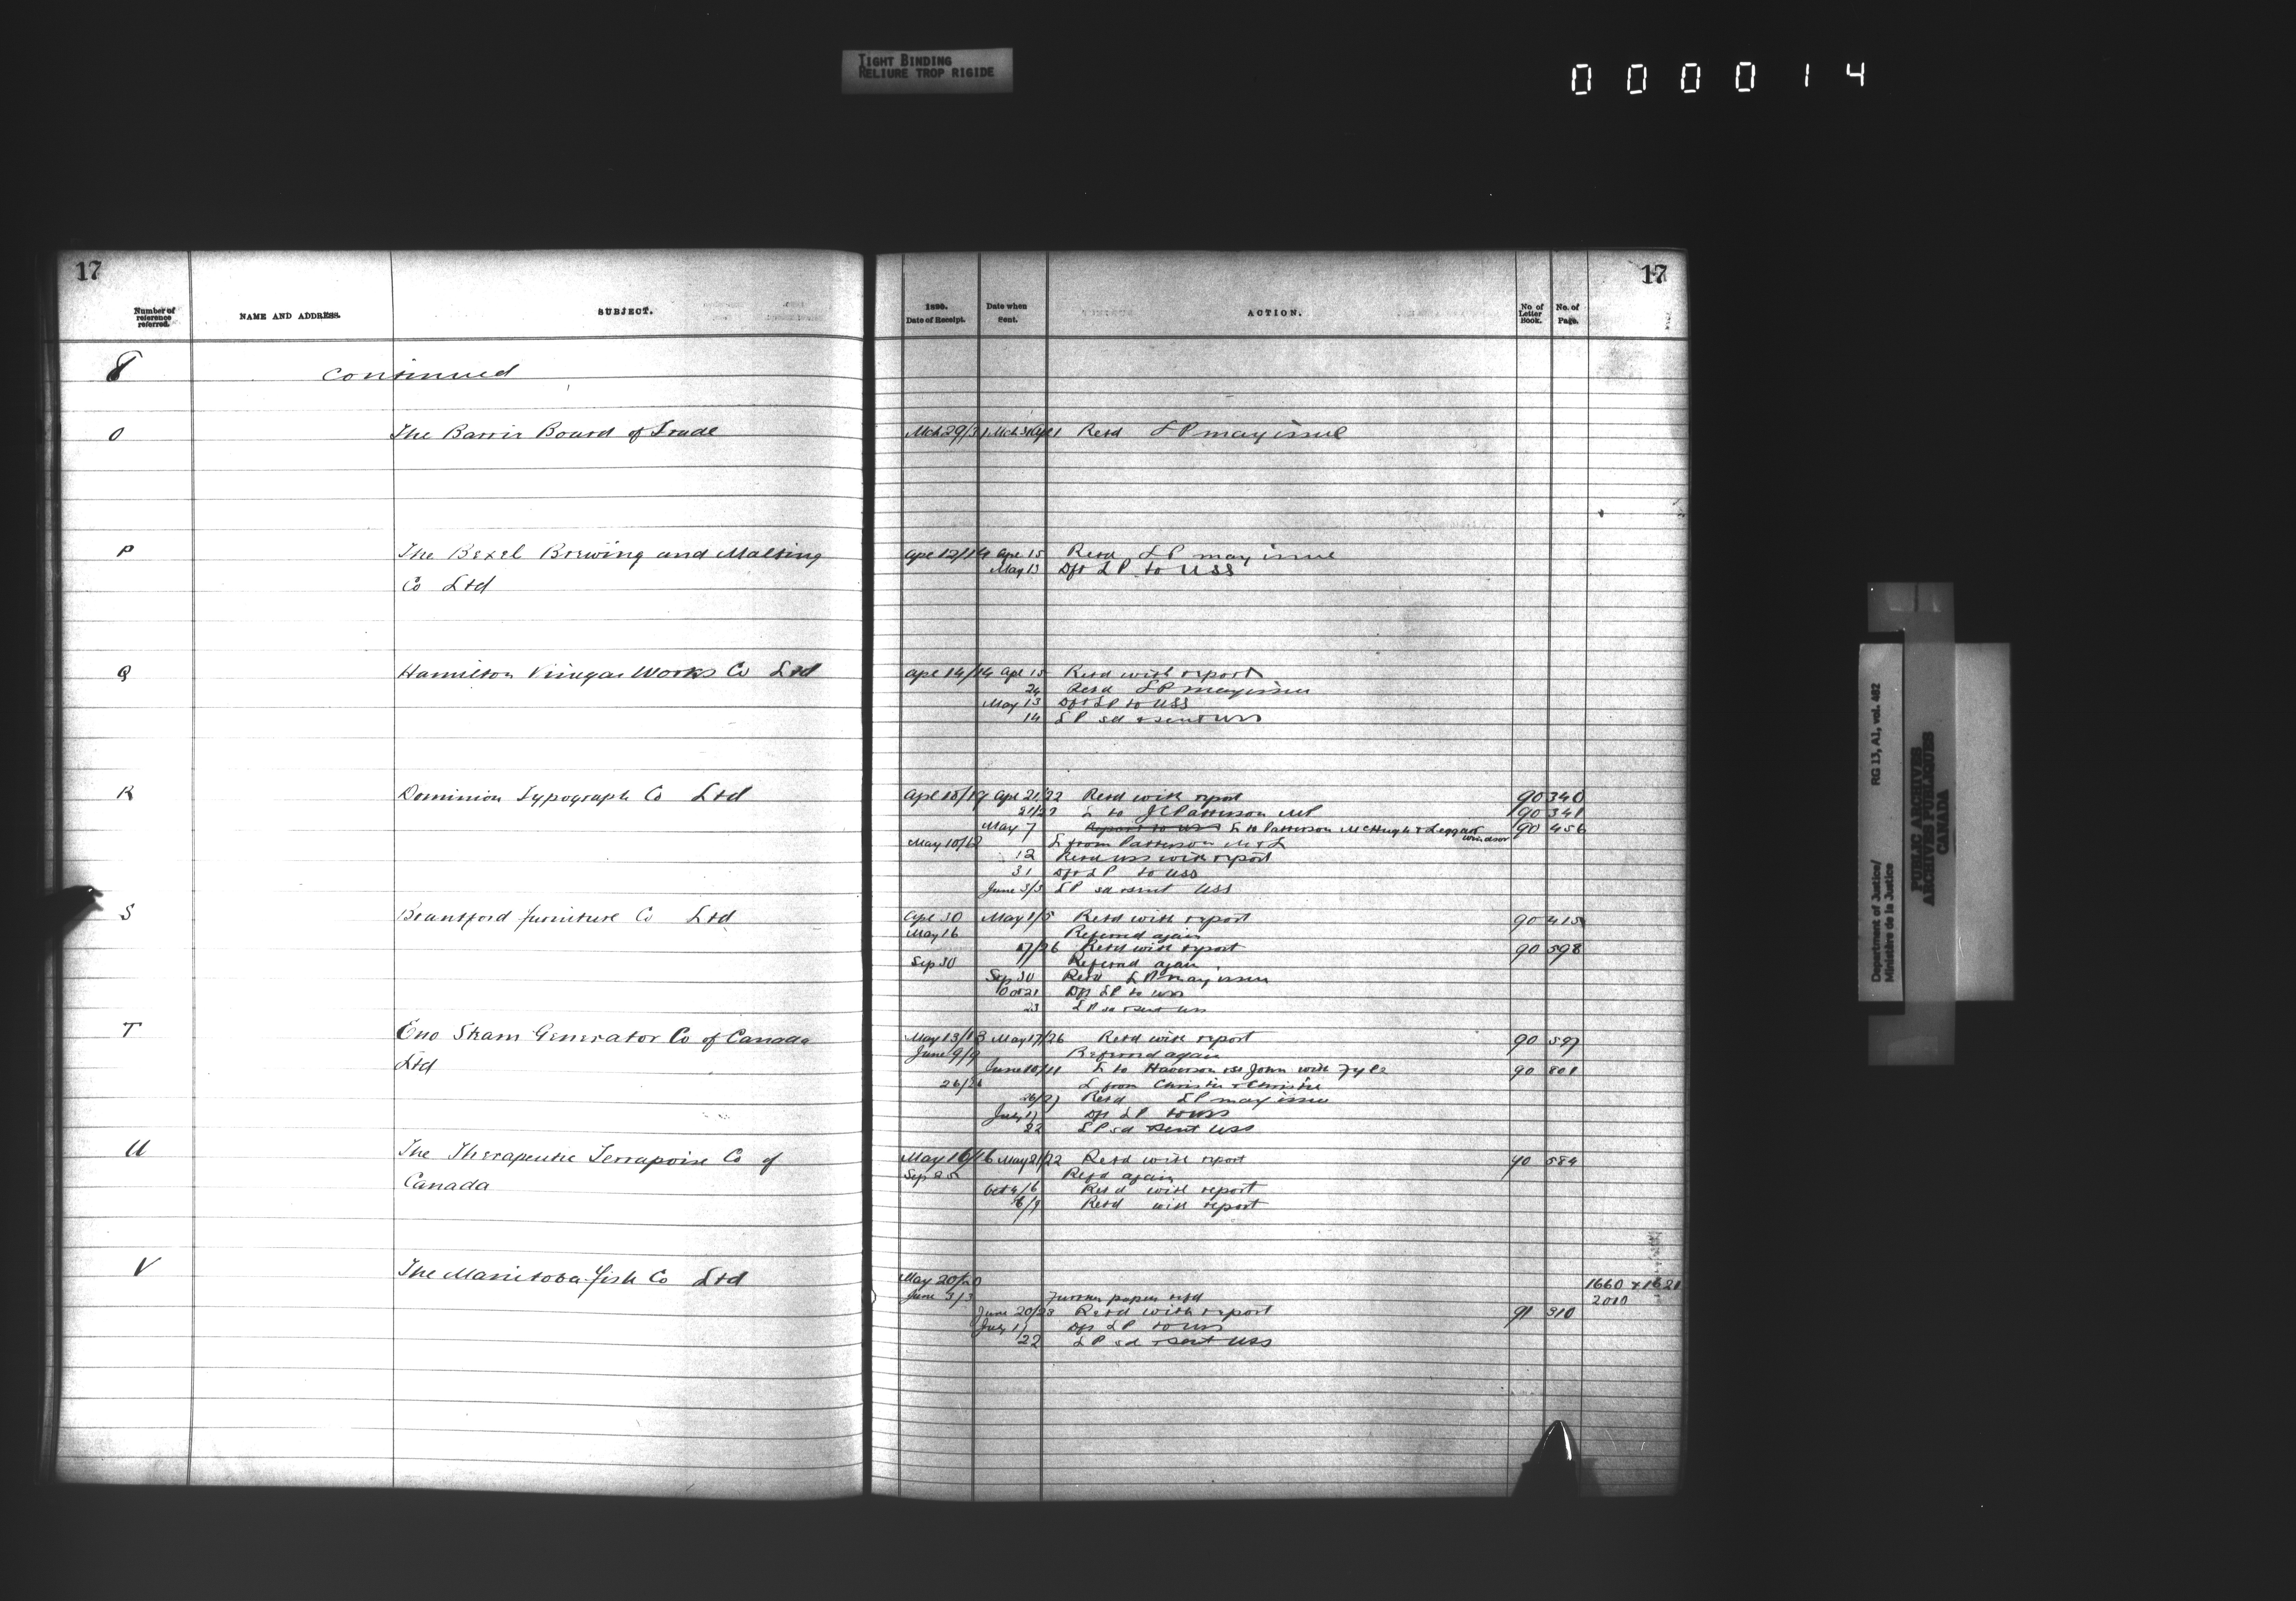 TIGHT BINDING
RELIURE TROP RIGIDE
000014
17
17
Number of reference referred.
NAME AND ADDRESS.
SUBJECT.
1890.
Date of Receipt.
Date when Sent.
ACTION.
No of Letter Book.
No. of Page.
8 continued
O The Barrie Board of Trade Mch 29/31 Retd LP may issue
P The Bexel Brewing and Malting Apl 12/14 Apl 15 Retd LP may issue
Co Ltd May 13 Dft LP to USS
Q Hamilton Vinegar Works Co Ltd Apl 14/14 Apl 15 Retd with report
24 Retd LP may issue
May 13 Dft LP to USS
14 LP sd & sent USS
R Dominion Typograph Co Ltd Apl 18/19 Apl 21/22 Retd with report 90 340
21/22 L to J C Patterson MP 90 341
May 7 Report to USS L to Patterson McHugh & Leggatt Windsor 90 456
May 10/12 L from Patterson M & L
12 Retd USS with report
31 Dft LP to USS
June 3/3 LP sd & sent USS
S Brantford Furniture Co Ltd Apl 30 May 1/5 Retd with report 90 415
May 16 Referred again
17/26 Retd with report 90 598
Sep 30 Referred again
Sep 30 Retd LP may issue
Oct 21 Dft LP to USS
23 LP sd & sent USS
T Eno Steam Generator Co of Canada May 13/13 May 17/26 Retd with report 90 597
Ltd June 9/9 Referred again
June 10/11 L to Haverson & St John with fyle 90 801
26/26 L from Christie & Christie
26/27 Retd LP may issue
July 17 Dft LP to USS
22 LP sd & sent USS
U The Therapeutic Terrapoise Co of May 16/16 May 21/22 Retd with report 90 584
Canada Sep 25 Refd again
Oct 4/6 Retd with report
8/9 Retd with report
V The Manitoba Fish Co Ltd May 20/20 1660 & 1621
June 3/3 Further papers refd 2010
June 20/23 Retd with report 91 310
July 17 Dft LP to USS
22 LP sd & sent USS
Department of Justice/ RG 13, A1, vol. 482
Ministère de la Justice
PUBLIC ARCHIVES
ARCHIVES PUBLIQUES
CANADA